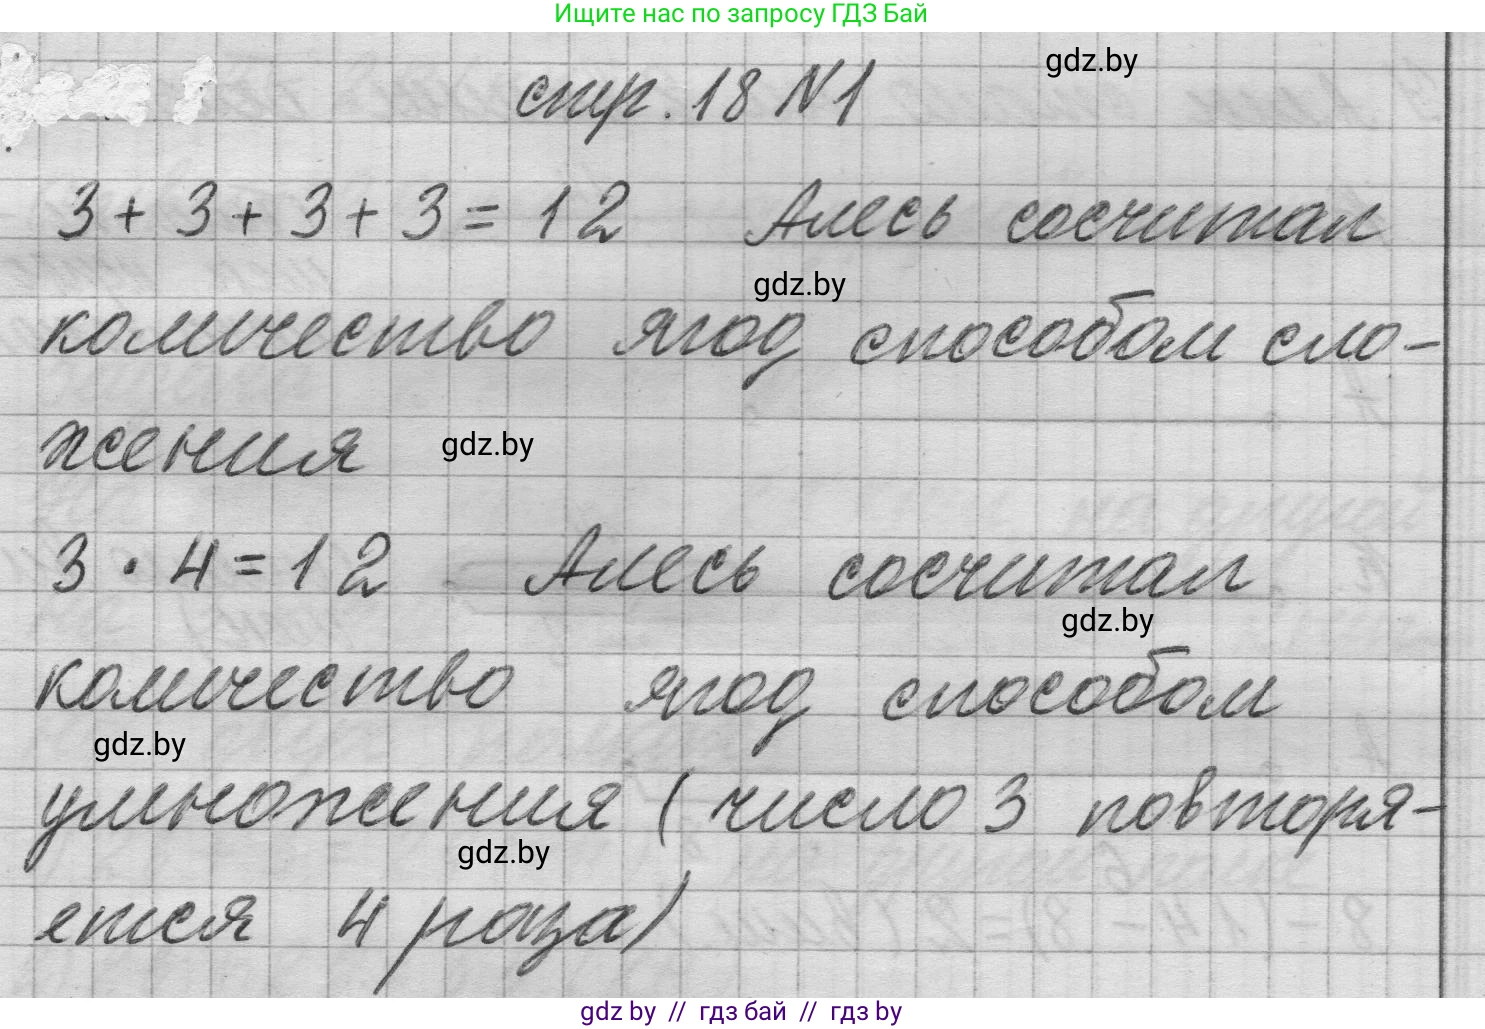 Ищите нас по запросу ГДЗ Бай
стр. 18 N1
gdz.by
3+ 3+ 3+ 3= 12 Алесь сосчитал
gdz.by
количество ягод способом сло-
жения
gdz.by
3 · 4=12 Алесь сосчитал
gdz.by
количество ягод способом
gdz.by
умножения (число 3 повторя-
gdz.by
ется 4 раза)
gdz by // гдз бай // гдз by